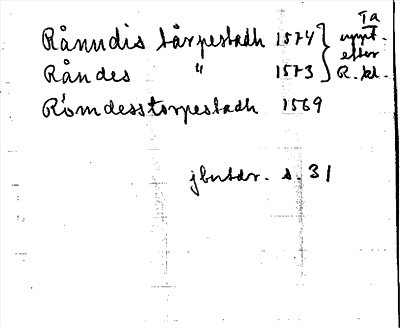 Rånndis tårpestadh 1574 } Ta
uppt.
efter
Råndes " 1573 } R. kl.
Römdesstorpestadh 1569
jbutdr. s. 31